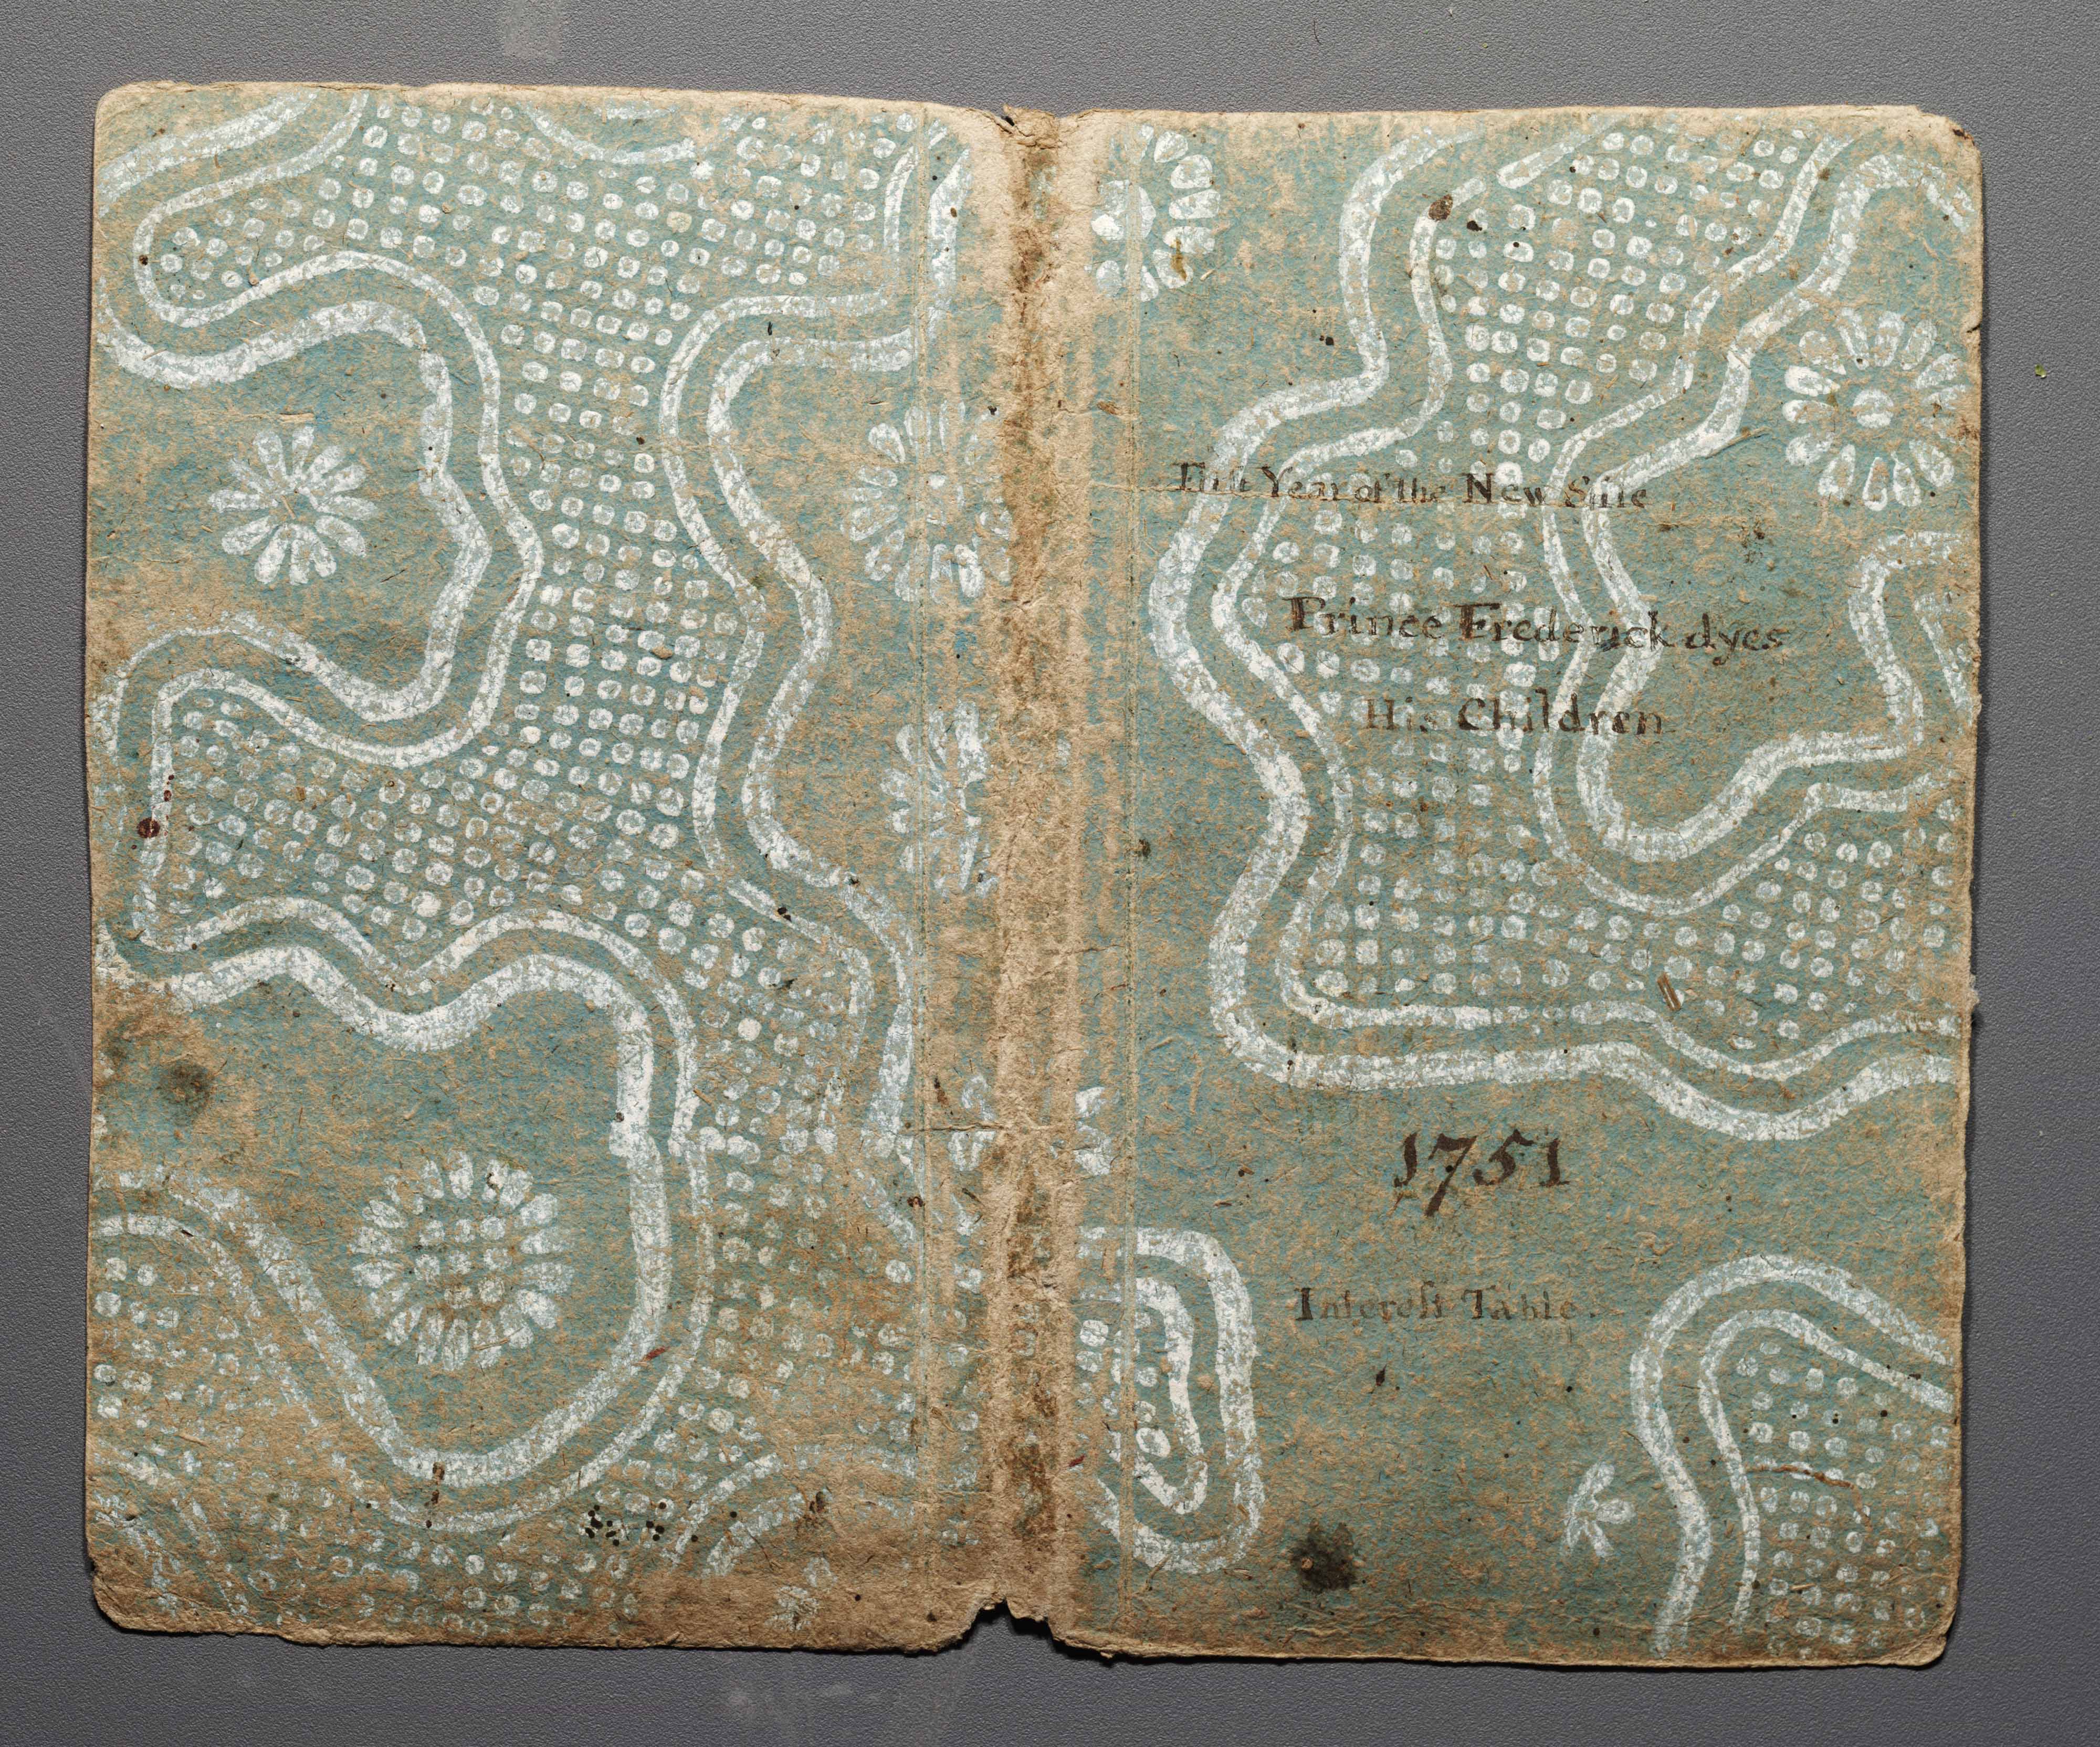 First Year of the New Stile
Prince Frederick dyes
His Children
1751
Intereſt Table.